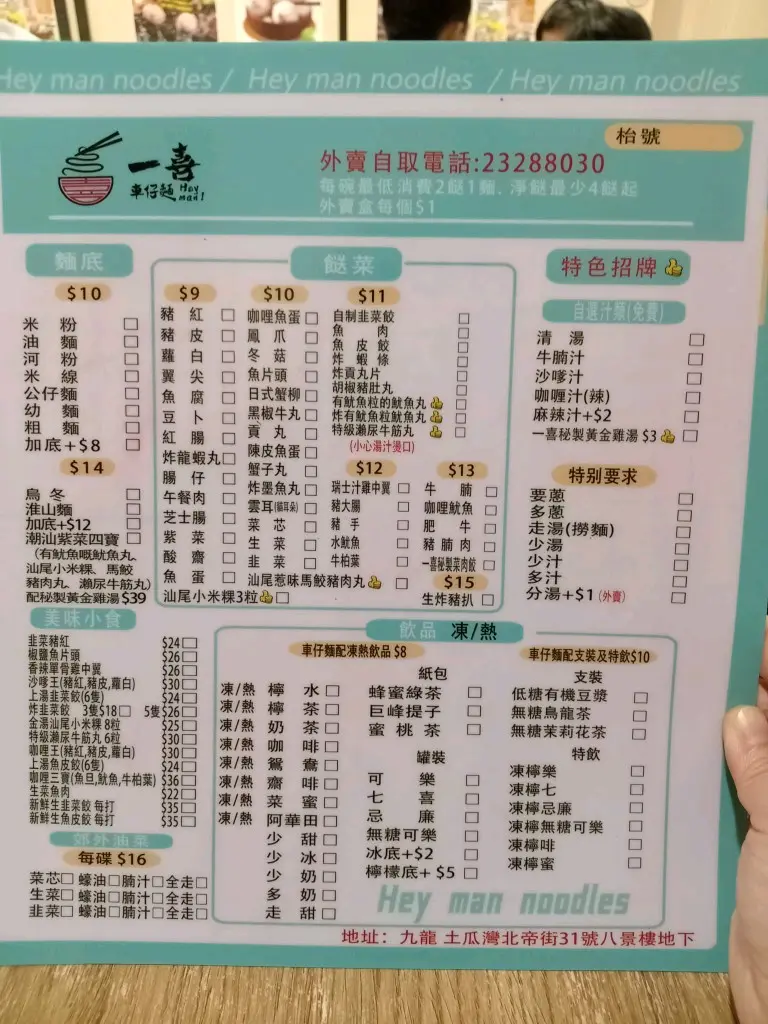 Hey man noodles / Hey man noodles / Hey man noodles
枱號
一喜
車仔麵 Hey man!
外賣自取電話:23288030
每碗最低消費2餸1麵. 淨餸最少4餸起
外賣盒每個$1
麵底
$10
米粉
油麵
河粉
米線
公仔麵
幼麵
粗麵
加底+$8
$14
烏冬
淮山麵
加底+$12
潮汕紫菜四寶
(有魷魚嘅魷魚丸、
汕尾小米粿、馬鮫
豬肉丸、瀨尿牛筋丸)
配秘製黃金雞湯 $39
餸菜
$9
豬紅
豬皮
蘿白
翼尖
魚腐
豆卜
紅腸
炸龍蝦丸
腸仔
午餐肉
芝士腸
紫菜
酸齋
魚蛋
汕尾小米粿3粒
$10
咖哩魚蛋
鳳爪
冬菇
魚片頭
日式蟹柳
黑椒牛丸
貢丸
陳皮魚蛋
蟹子丸
炸墨魚丸
雲耳(貓耳朵)
菜芯
生菜
韭菜
汕尾惹味馬鮫豬肉丸
$11
自制韭菜餃
魚肉
魚皮餃
炸蝦條
炸貢丸片
胡椒豬肚丸
有魷魚粒的魷魚丸
炸有魷魚粒魷魚丸
特級瀨尿牛筋丸
(小心湯汁燙口)
$12
瑞士汁雞中翼
豬大腸
豬手
水魷魚
牛柏葉
$13
牛腩
咖哩魷魚
肥牛
豬腩肉
一喜秘製菜肉餃
$15
生炸豬扒
特色招牌
自選汁類(免費)
清湯
牛腩汁
沙嗲汁
咖喱汁(辣)
麻辣汁+$2
一喜秘製黃金雞湯 $3
特別要求
要蔥
多蔥
走湯(撈麵)
少湯
少汁
多汁
分湯+$1 (外賣)
美味小食
韭菜豬紅 $24
椒鹽魚片頭 $26
香辣單骨雞中翼 $26
沙嗲王(豬紅,豬皮,蘿白) $30
上湯韭菜餃(6隻) $24
炸韭菜餃 3隻$18 5隻$26
金湯汕尾小米粿 8粒 $25
特級瀨尿牛筋丸 6粒 $30
咖喱王(豬紅,豬皮,蘿白) $30
上湯魚皮餃(6隻) $24
咖哩三寶(魚旦,魷魚,牛柏葉) $36
生菜魚肉 $22
新鮮生韭菜餃 每打 $35
新鮮生魚皮餃 每打 $35
郊外油菜
每碟 $16
菜芯 蠔油 腩汁 全走
生菜 蠔油 腩汁 全走
韭菜 蠔油 腩汁 全走
飲品 凍/熱
車仔麵配凍熱飲品 $8
凍/熱 檸水
凍/熱 檸茶
凍/熱 奶茶
凍/熱 咖啡
凍/熱 鴛鴦
凍/熱 齋啡
凍/熱 菜蜜
凍/熱 阿華田
少甜
少冰
少奶
多奶
走甜
紙包
蜂蜜綠茶
巨峰提子
蜜桃茶
罐裝
可樂
七喜
忌廉
無糖可樂
冰底+$2
檸檬底+ $5
車仔麵配支裝及特飲$10
支裝
低糖有機豆漿
無糖烏龍茶
無糖茉莉花茶
特飲
凍檸樂
凍檸七
凍檸忌廉
凍檸無糖可樂
凍檸啡
凍檸蜜
Hey man noodles
地址: 九龍 土瓜灣北帝街31號八景樓地下